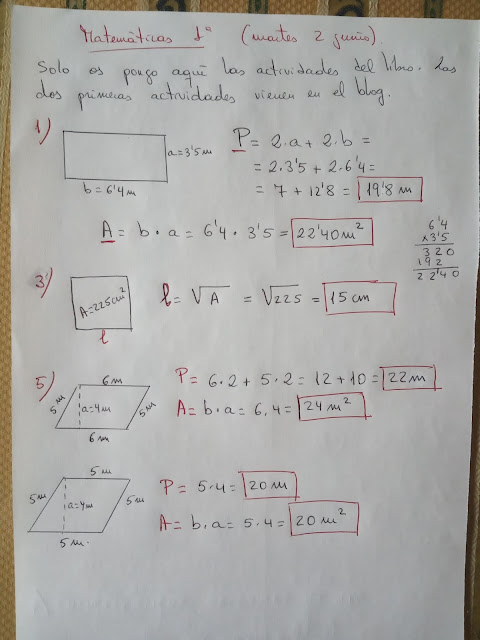 Matemáticas 1º (martes 2 junio).
Solo os pongo aquí las actividades del libro. Las
dos primeras actividades vienen en el blog.
1)
a=3'5m
b=6'4m
P = 2·a + 2·b =
= 2·3'5 + 2·6'4=
= 7 + 12'8 = 19'8 m
A = b · a = 6'4 · 3'5 = 22'40m²
6'4
x3'5
320
192
22'40
3)
A=225cm²
l
l = √A = √225 = 15 cm
5)
6m
5m
a=4m
5m
6m
P = 6·2 + 5·2 = 12 + 10 = 22m
A = b·a = 6.4 = 24 m²
5 m
5m
a=4m
5m
5m.
P = 5·4 = 20 m
A = b·a = 5·4 = 20 m²